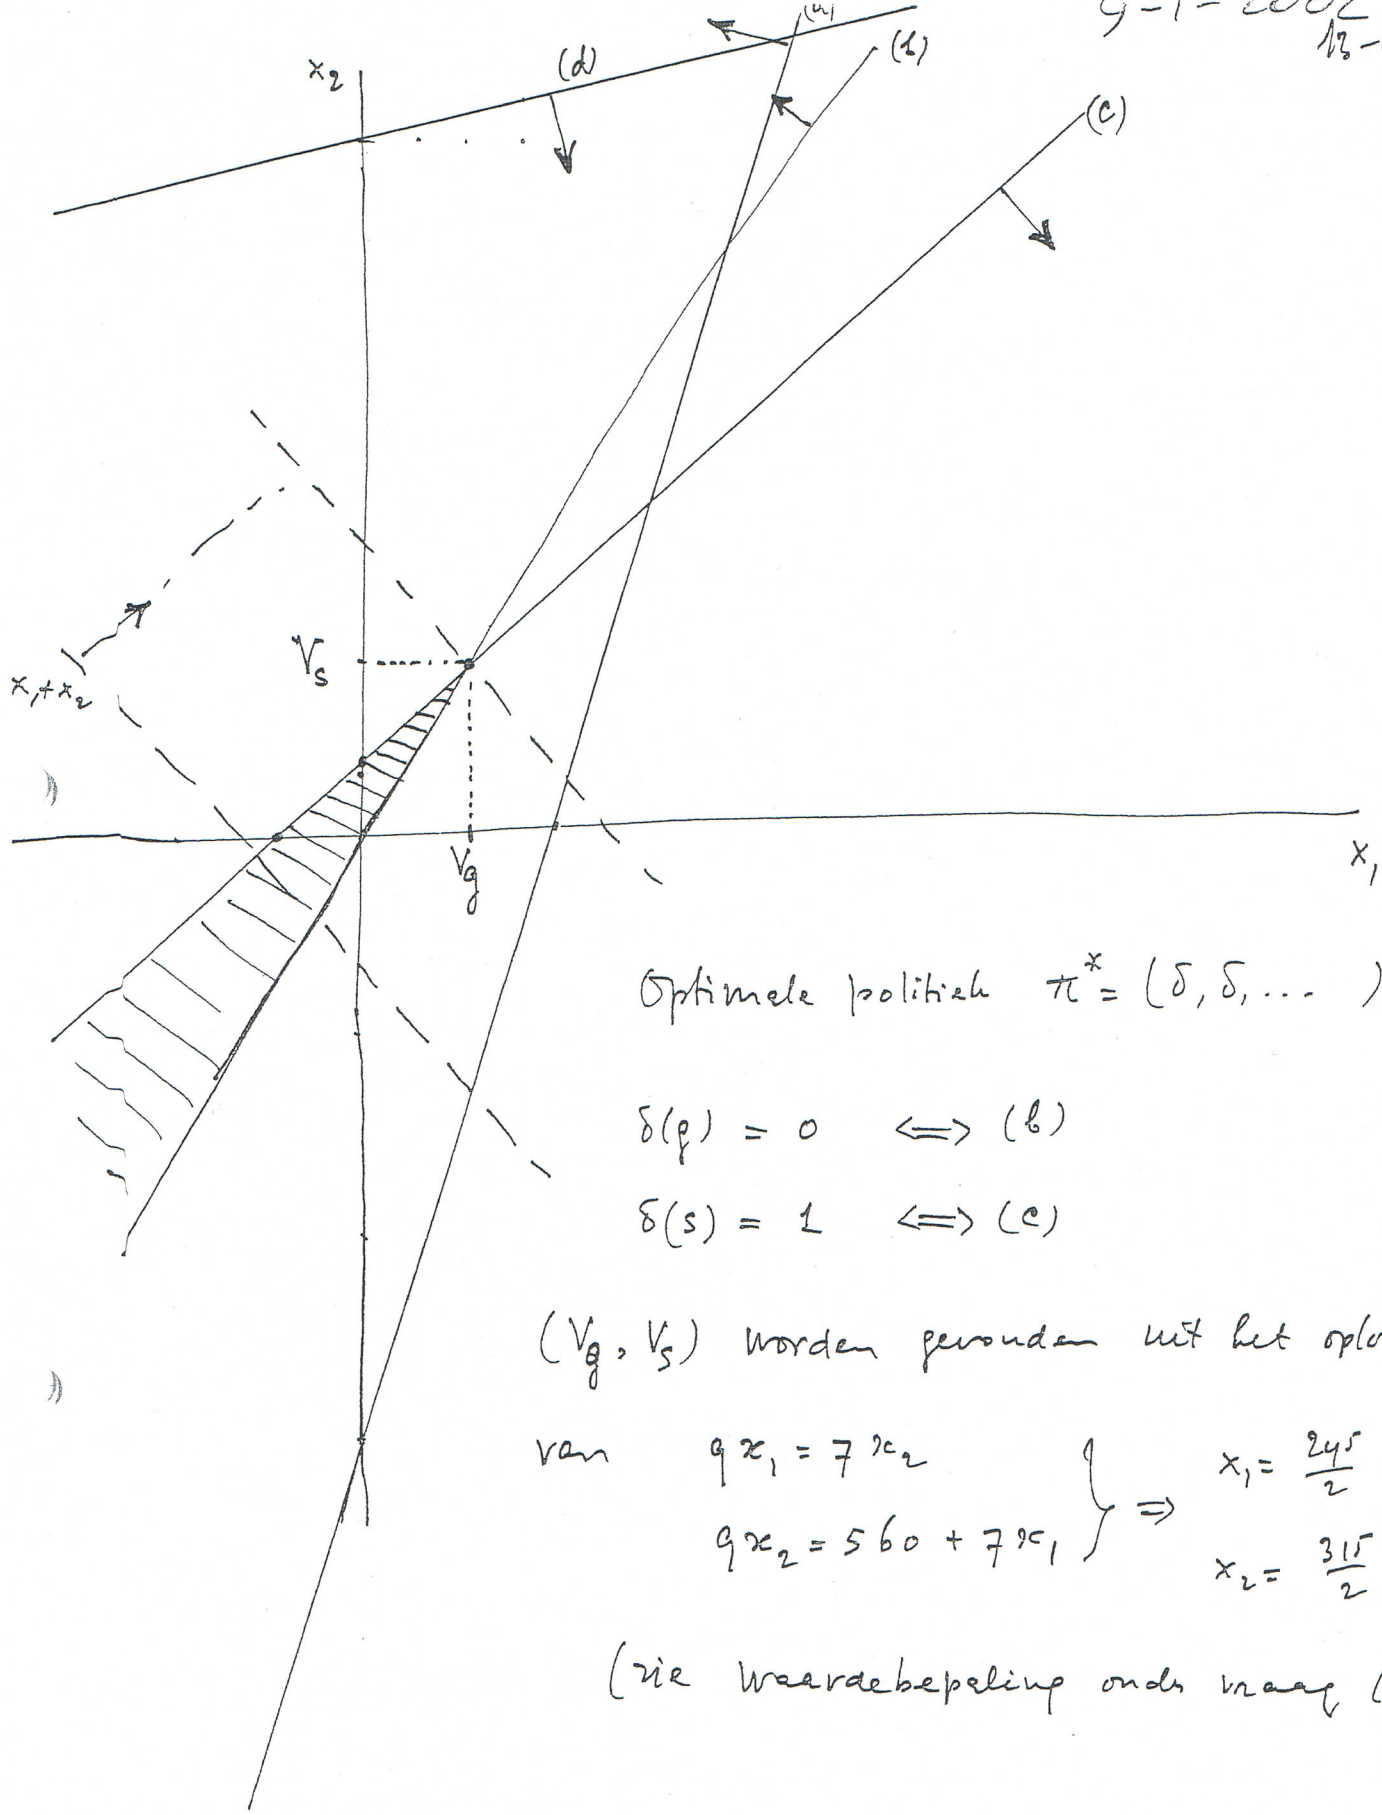 9-1-2002
13-
x₂
(d)
(a)
(b)
(c)
V_s
x₁+x₂
V_g
x₁
Optimale politiek π* = (δ, δ, ... )
δ(g) = 0 <=> (b)
δ(s) = 1 <=> (c)
(V_g, V_s) worden gevonden uit het oplo
van 9x₁ = 7x₂
9x₂ = 560 + 7x₁
} => x₁ = 245/2
x₂ = 315/2
(zie waardebepaling onder vraag (